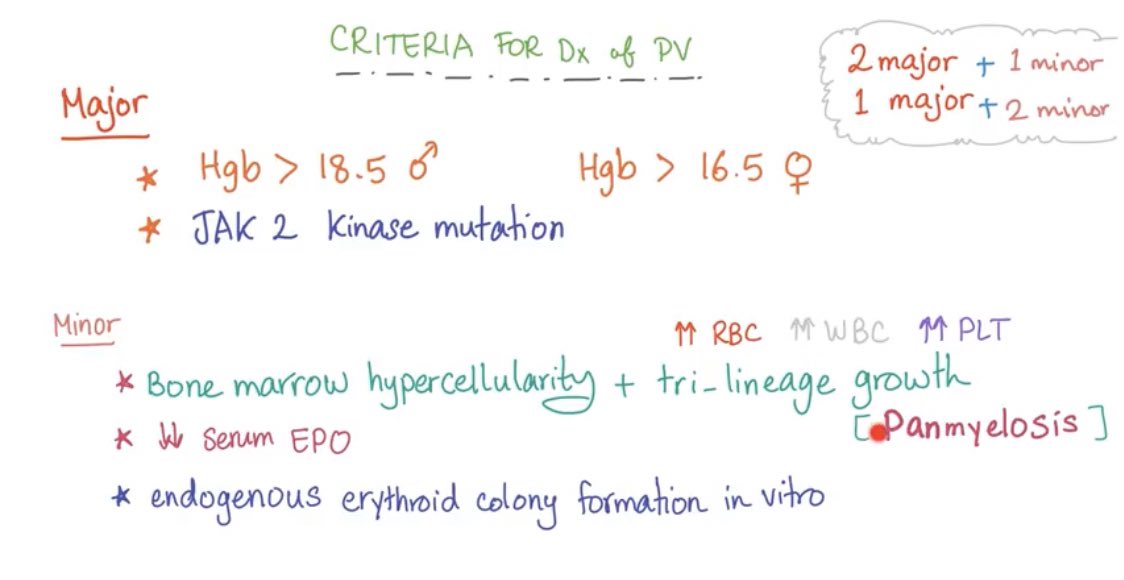 CRITERIA FOR Dx of PV
2 major + 1 minor
1 major + 2 minor
Major
* Hgb > 18.5 ♂ Hgb > 16.5 ♀
* JAK 2 Kinase mutation
Minor
⇈ RBC ⇈ WBC ⇈ PLT
* Bone marrow hypercellularity + tri-lineage growth
[Panmyelosis]
* ⇊ Serum EPO
* endogenous erythroid colony formation in vitro